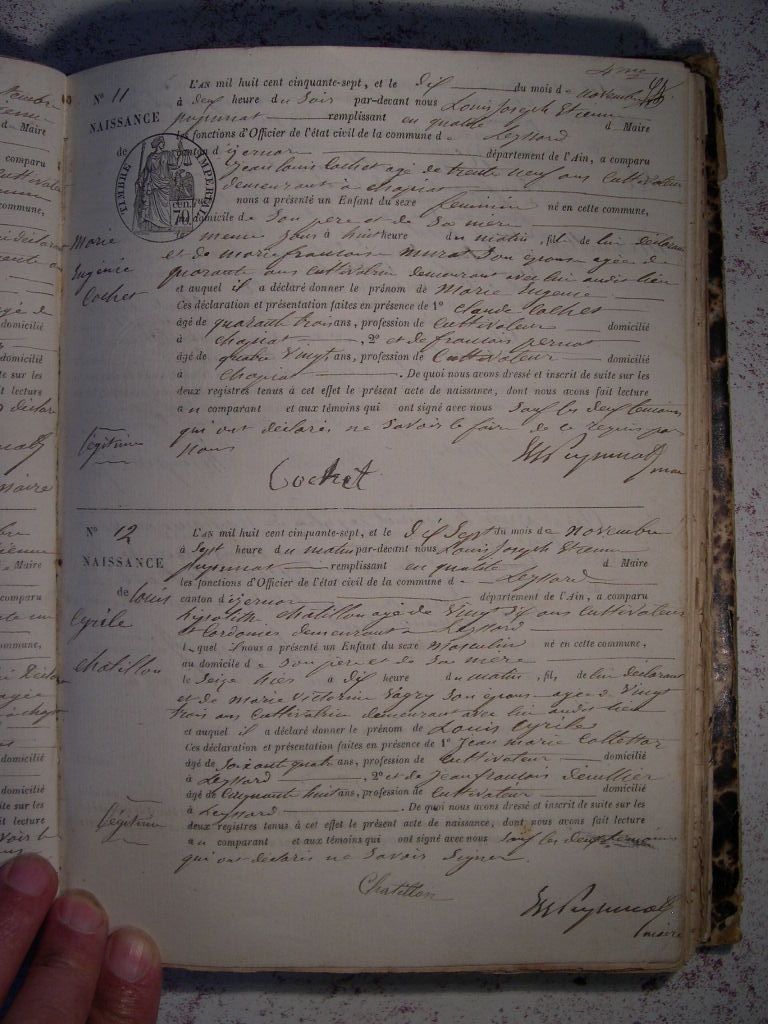 4me
N° 11
NAISSANCE
de
Marie
Eugénie
Cochet
Légitime
TIMBRE IMPÉRIAL
L'AN mil huit cent cinquante-sept, et le dix du mois de novembre
à deux heure du soir par-devant nous Louis Joseph Etienne
remplissant en qualité d Maire
les fonctions d'Officier de l'état civil de la commune d Leyssard
canton d'izernore département de l'Ain, a comparu
Jean Louis Cochet agé de trente neuf ans Cultivateur
demeurant à chapiat
nous a présenté un Enfant du sexe féminin né en cette commune,
au domicile de Son père et de Sa mère
le meme jour à huit heure du matin, fil de lui déclarant
et de marie francoise murat Son épouse agée de
quarante ans Cultivatrice demeurant avec lui audit lieu
et auquel il a déclaré donner le prénom de Marie Eugenie
Ces déclaration et présentation faites en présence de 1° claude Cochet
âgé de quarante trois ans, profession de Cultivateur domicilié
à chapiat, 2° et de francois pernod
âgé de quatre vingt ans, profession de Cultivateur domicilié
à Chapiat. De quoi nous avons dressé et inscrit de suite sur les
deux registres tenus à cet effet le présent acte de naissance, dont nous avons fait lecture
au comparant et aux témoins qui ont signé avec nous Sauf les deux temoins
qui ont déclarés ne Savoir le faire de ce requis par
Nous
Cochet
maire
N° 12
NAISSANCE
de Louis
Cyrile
chatillon
Légitime
L'AN mil huit cent cinquante-sept, et le dix Sept du mois de novembre
à Sept heure du matin par-devant nous Louis Joseph Etienne
remplissant en qualité d Maire
les fonctions d'Officier de l'état civil de la commune d Leyssard
canton d'izernore département de l'Ain, a comparu
hypolitte chatillon agé de Vingt Six ans Cultivateur
et Cordonnier demeurant à Leyssard
lequel il nous a présenté un Enfant du sexe Masculin né en cette commune,
au domicile de Son père et de Sa mère
le Seize à dix heure du matin, fil, de lui déclarant
et de Marie Victorine Son épouse agée de Vingt
trois ans Cultivatrice demeurant avec lui audit lieu
et auquel il a déclaré donner le prénom de Louis Cyrile
Ces déclaration et présentation faites en présence de 1° Jean Marie Colletaz
âgé de Soixante quatre ans, profession de Cultivateur domicilié
à Leyssard, 2° et de Jean francois
âgé de Cinquante huit ans, profession de Cultivateur domicilié
à Leyssard. De quoi nous avons dressé et inscrit de suite sur les
deux registres tenus à cet effet le présent acte de naissance, dont nous avons fait lecture
au comparant et aux témoins qui ont signé avec nous Sauf les deux temoins
qui ont déclaris ne Savoir Signer.
Chatillon
maire